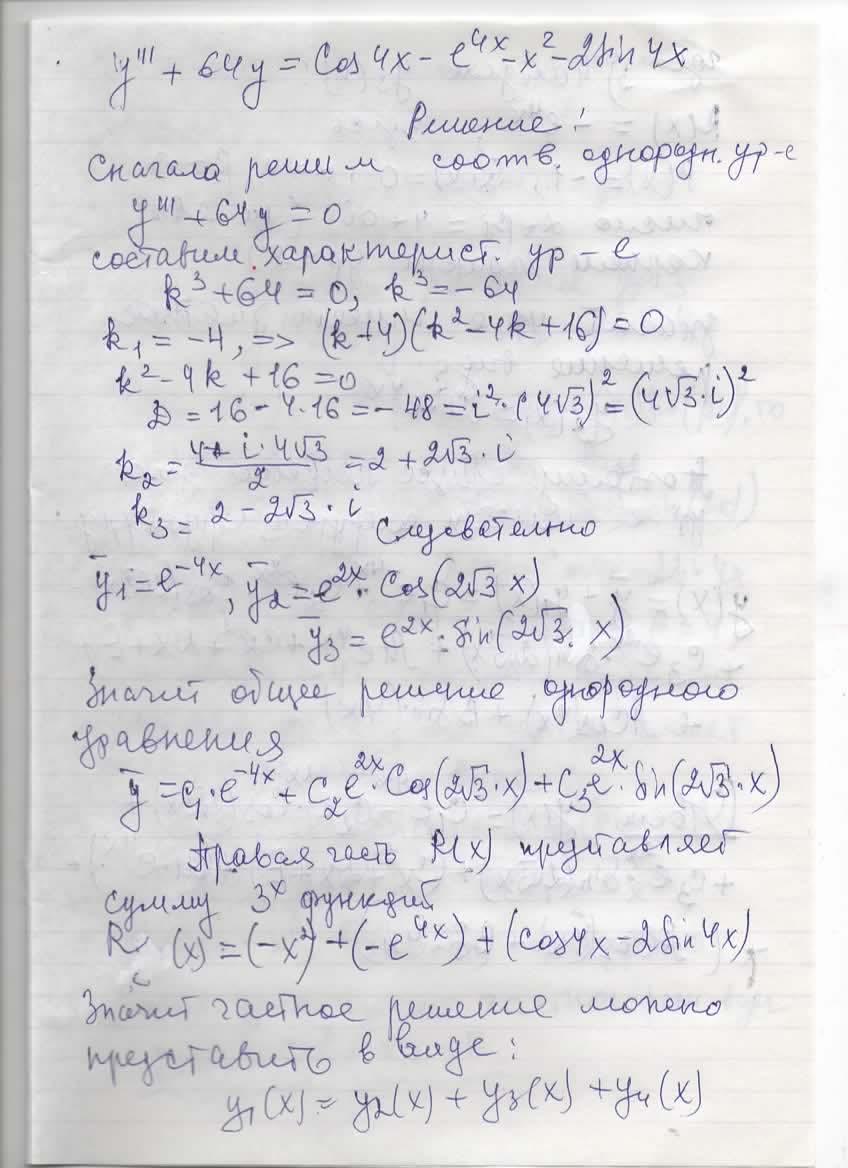 y''' + 64y = Cos 4x - e^{4x} - x^2 - 2Sin 4x
Решение:
Сначала решим соотв. однородн. ур-е
y''' + 64y = 0
составим характерист. ур-е
k^3 + 64 = 0, k^3 = -64
k_1 = -4, => (k+4)(k^2 - 4k + 16) = 0
k^2 - 4k + 16 = 0
D = 16 - 4·16 = -48 = i^2·(4√3)^2 = (4√3·i)^2
k_2 = (4 + i·4√3)/2 = 2 + 2√3·i
k_3 = 2 - 2√3·i Следовательно
ȳ_1 = e^{-4x}, ȳ_2 = e^{2x}·Cos(2√3 x)
ȳ_3 = e^{2x}·Sin(2√3·x)
Значит общее решение однородного
уравнения
ȳ = C_1·e^{-4x} + C_2e^{2x}·Cos(2√3·x) + C_3e^{2x}·Sin(2√3·x)
Правая часть R(x) представляет
сумму 3^х функций
R(x) = (-x^2) + (-e^{4x}) + (cos4x - 2Sin4x)
Значит частное решение можно
представить в виде:
y_1(x) = y_2(x) + y_3(x) + y_4(x)